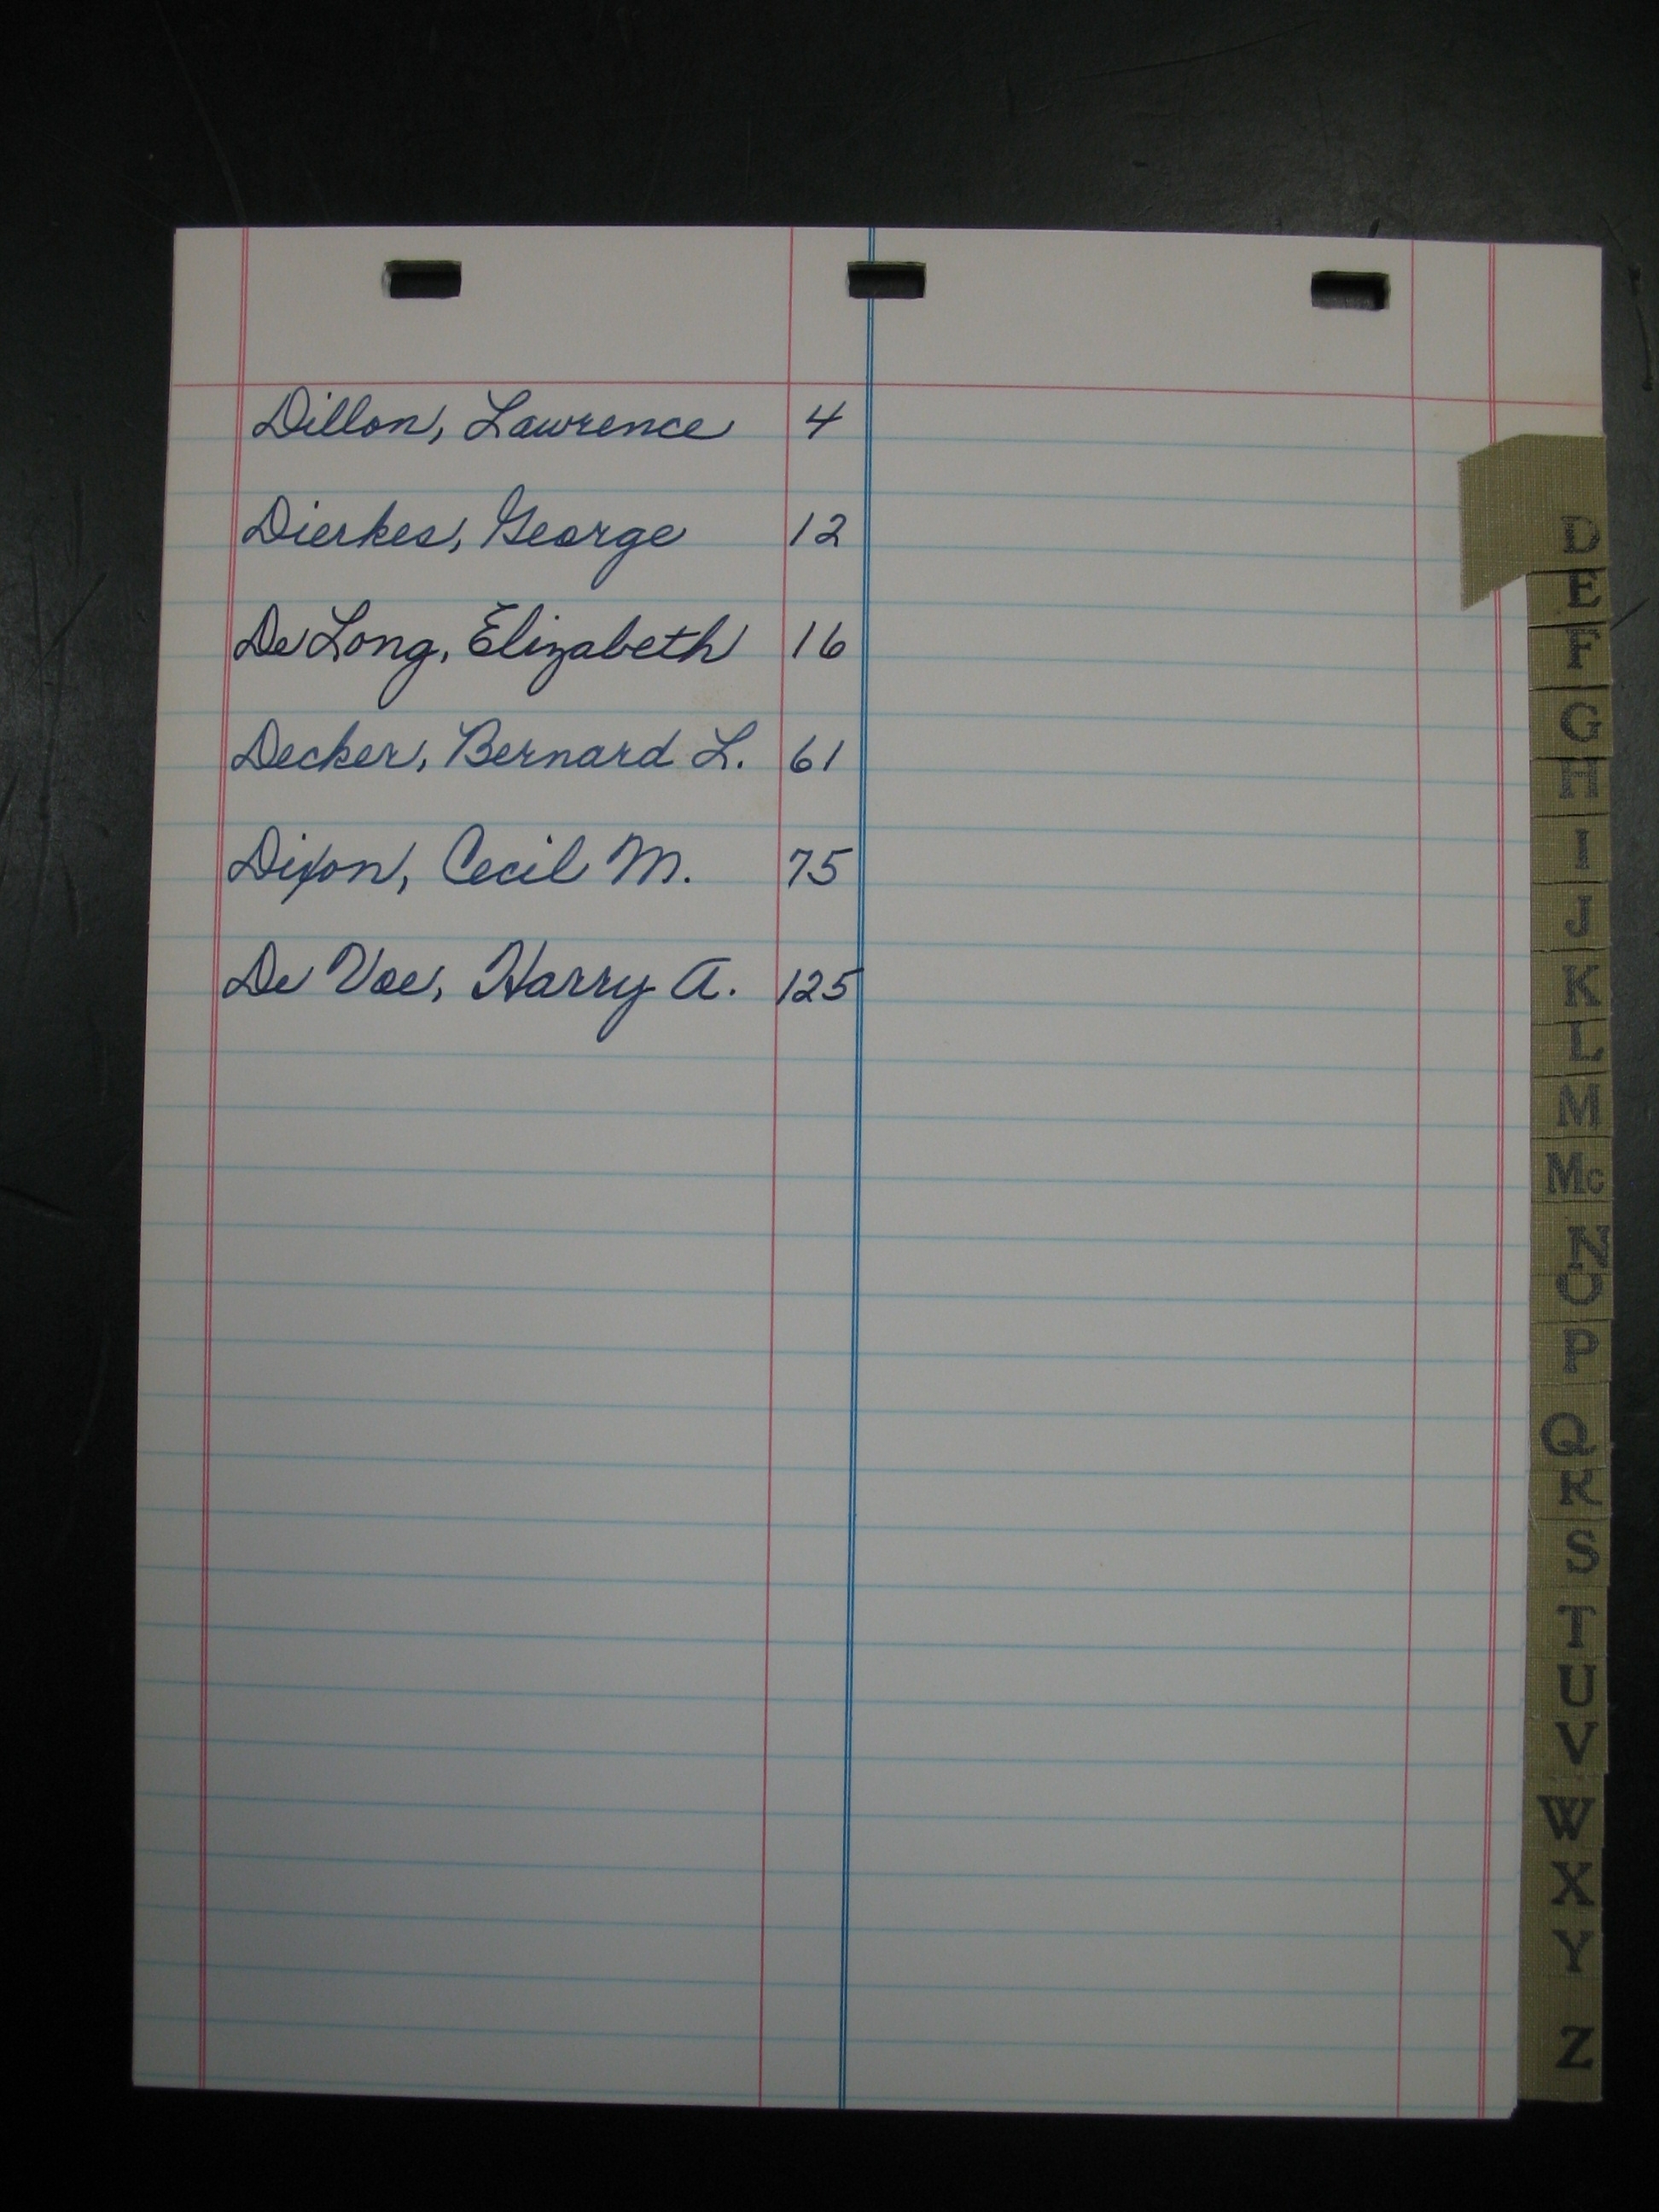 Dillon, Lawrence 4
Dierkes, George 12
De Long, Elizabeth 16
Decker, Bernard L. 61
Dixon, Cecil M. 75
De Voe, Harry A. 125
D
E
F
G
H
I
J
K
L
M
Mc
N
O
P
Q
R
S
T
U
V
W
X
Y
Z